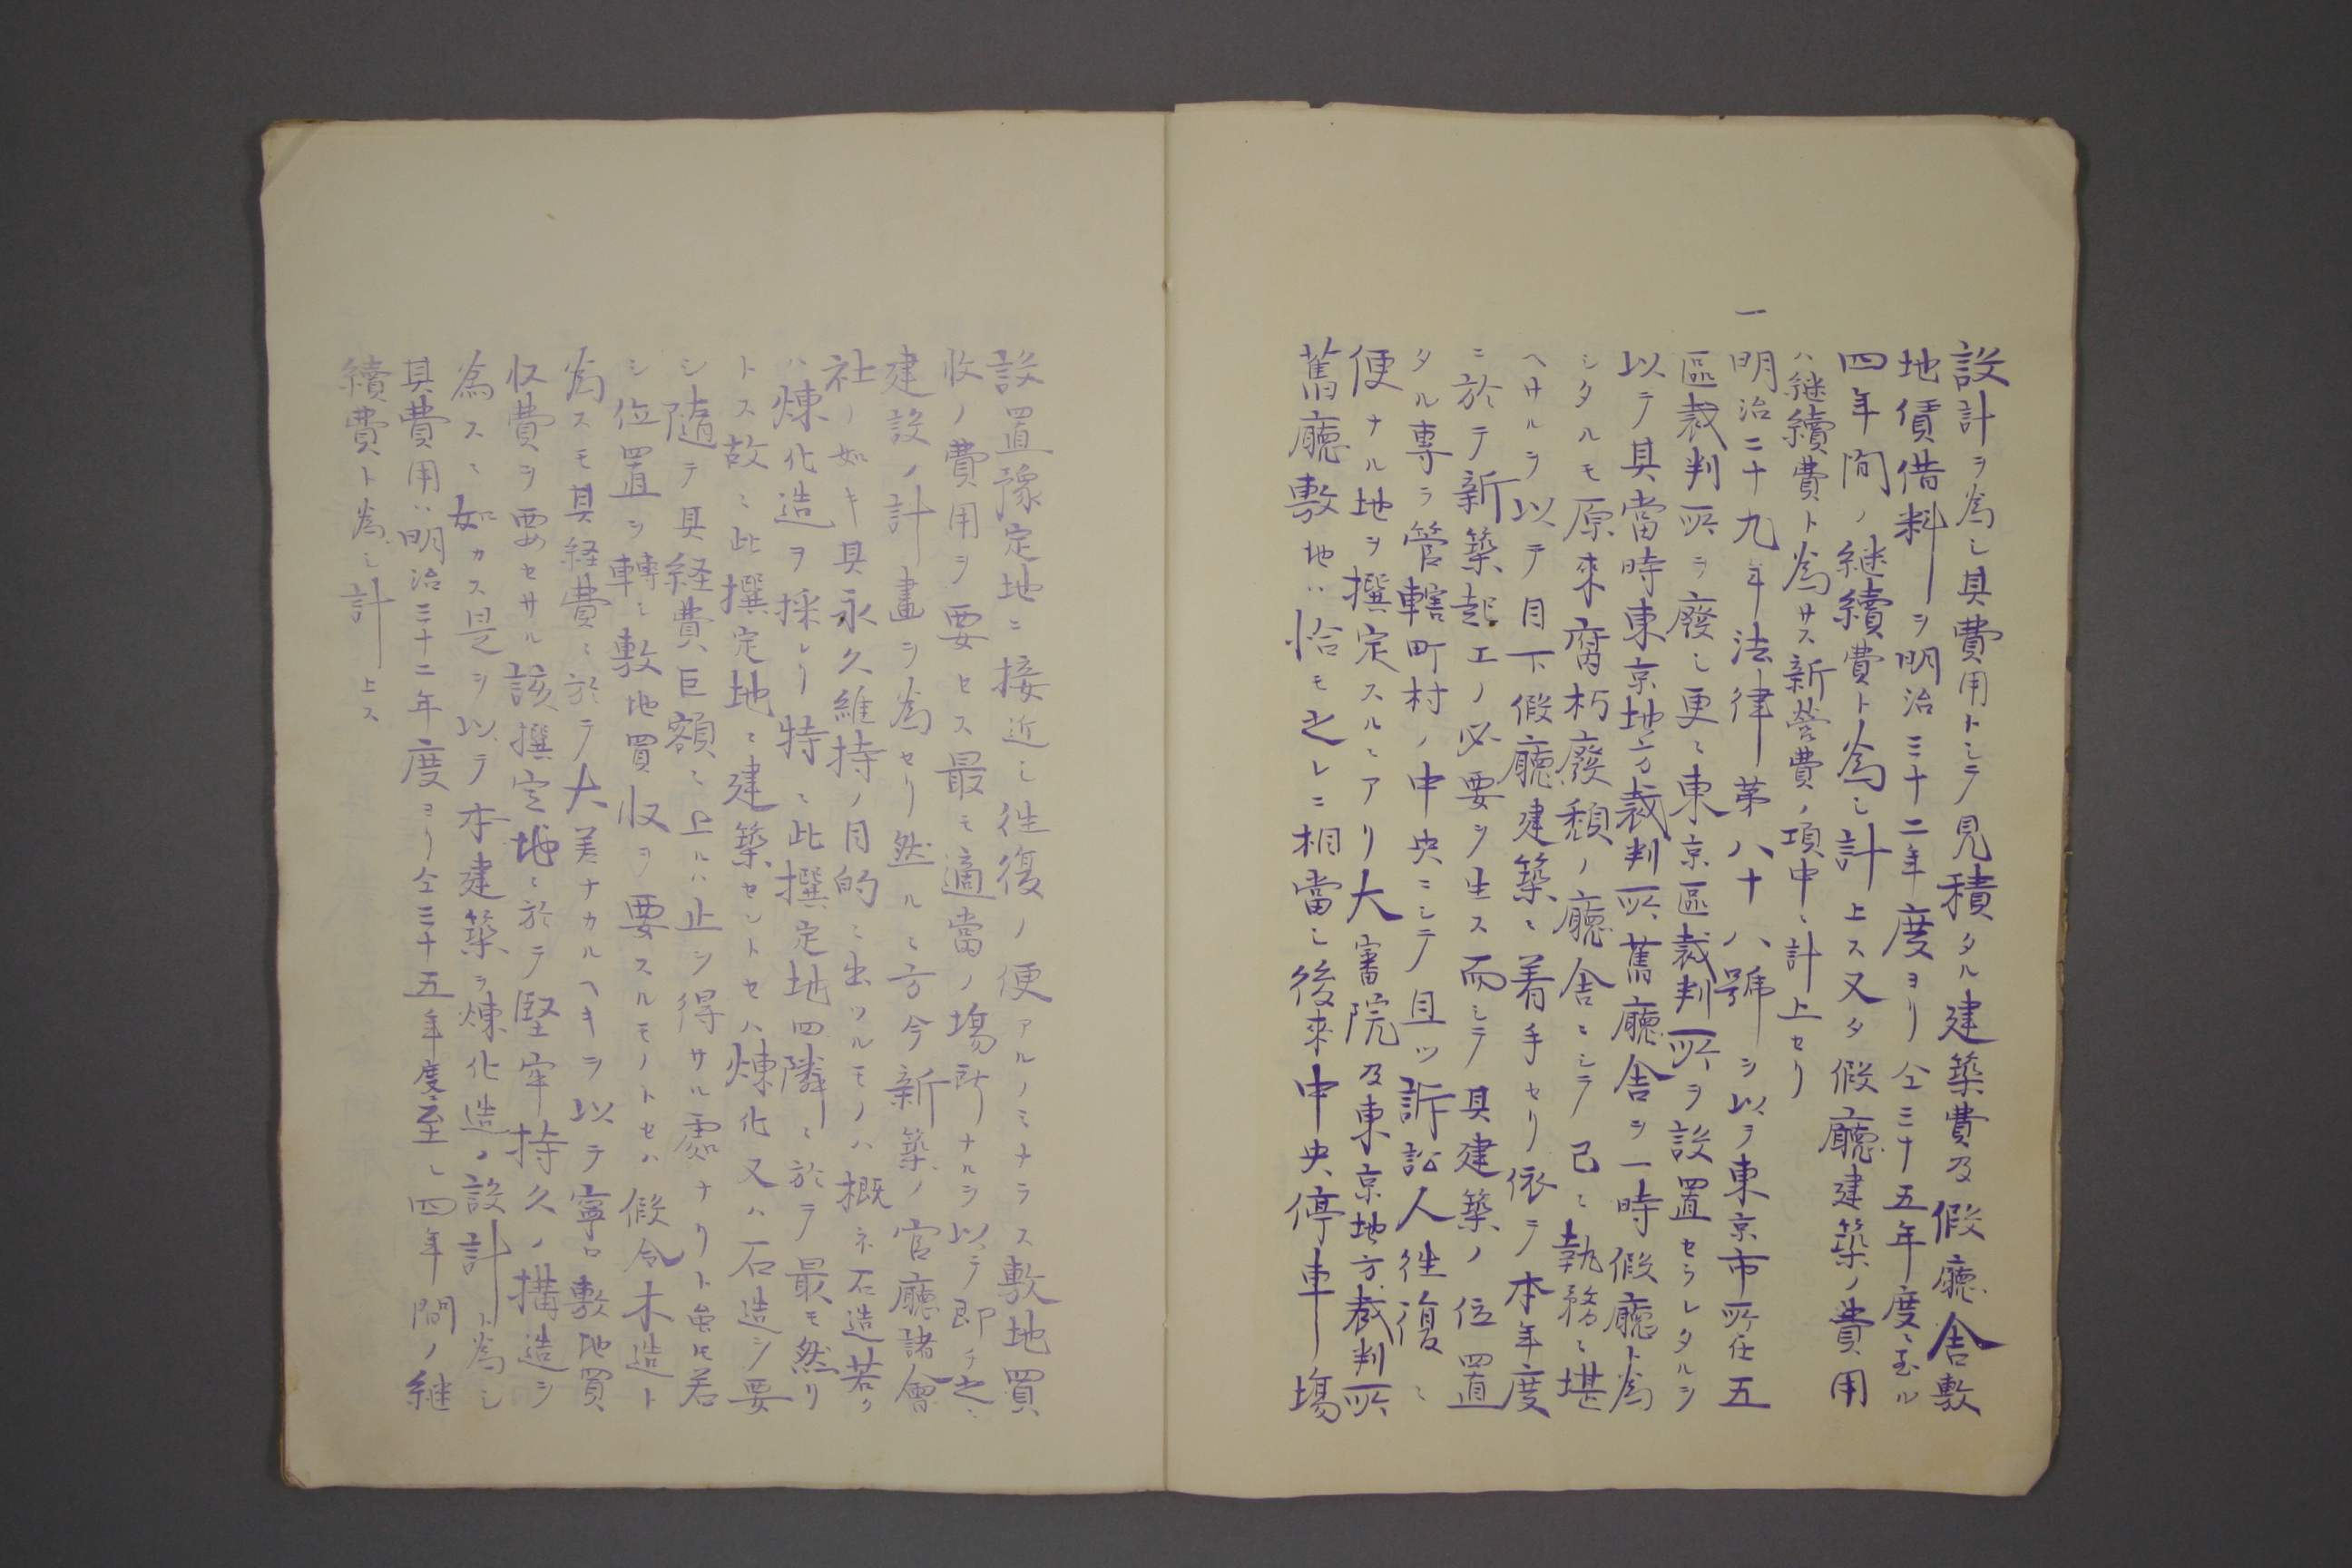 設計ヲ為シ其費用トシテ見積タル建築費及假廳舎敷
地債借料ヲ明治三十二年度ヨリ仝三十五年度ニ至ル
四年間ノ継續費ト為シ計上ス又タ假廳建築ノ費用
ハ継續費ト為サス新營費ノ項中ニ計上セリ
一明治二十九年法律第八十八號ヲ以テ東京市所在五
區裁判所ヲ廢シ更ニ東京區裁判所ヲ設置セラレタルヲ
以テ其當時東京地方裁判所舊廳舎ヲ一時假廳ト為
シタルモ原來腐朽廢頽ノ廳舎ニシテ已ニ執務ニ堪
ヘサルヲ以テ目下假廳建築ニ着手セリ依テ本年度
ニ於テ新築起工ノ必要ヲ生ス而シテ其建築ノ位置
タル專ラ管轄町村ノ中央ニシテ且ツ訴訟人徃復ニ
便ナル地ヲ撰定スルニアリ大審院及東京地方裁判所
舊廳敷地ハ恰モ之レニ相當シ後来中央停車場
設置豫定地ニ接近シ徃復ノ便アルノミナラス敷地買
收ノ費用ヲ要セス最モ適當ノ塲所ナルヲ以テ即チ之ニ
建設ノ計畫ヲ為セリ然ルニ方今新築ノ官廳諸會
社ノ如キ其永久維持ノ目的ニ出ツルモノハ概ネ石造若ク
ハ煉化造ヲ採レリ特ニ此撰定地四隣ニ於テ最モ然リ
トス故ニ此撰定地ニ建築セントセハ煉化又ハ石造ヲ要
シ隨テ其経費巨額ニ上ルハ止ヲ得サル處ナリト雖モ若
シ位置ヲ轉シ敷地買収ヲ要スルモノトセハ假令木造ト
為スモ其経費ニ於テ大差ナカルヘキヲ以テ寧ロ敷地買
収費ヲ要セサル該撰定地ニ於テ堅牢持久ノ構造ヲ
為スニ如カス是ヲ以テ本建築ヲ煉化造ノ設計ト為シ
其費用ハ明治三十二年度ヨリ仝三十五年度ニ至ル四年間ノ継
續費ト為シ計上ス